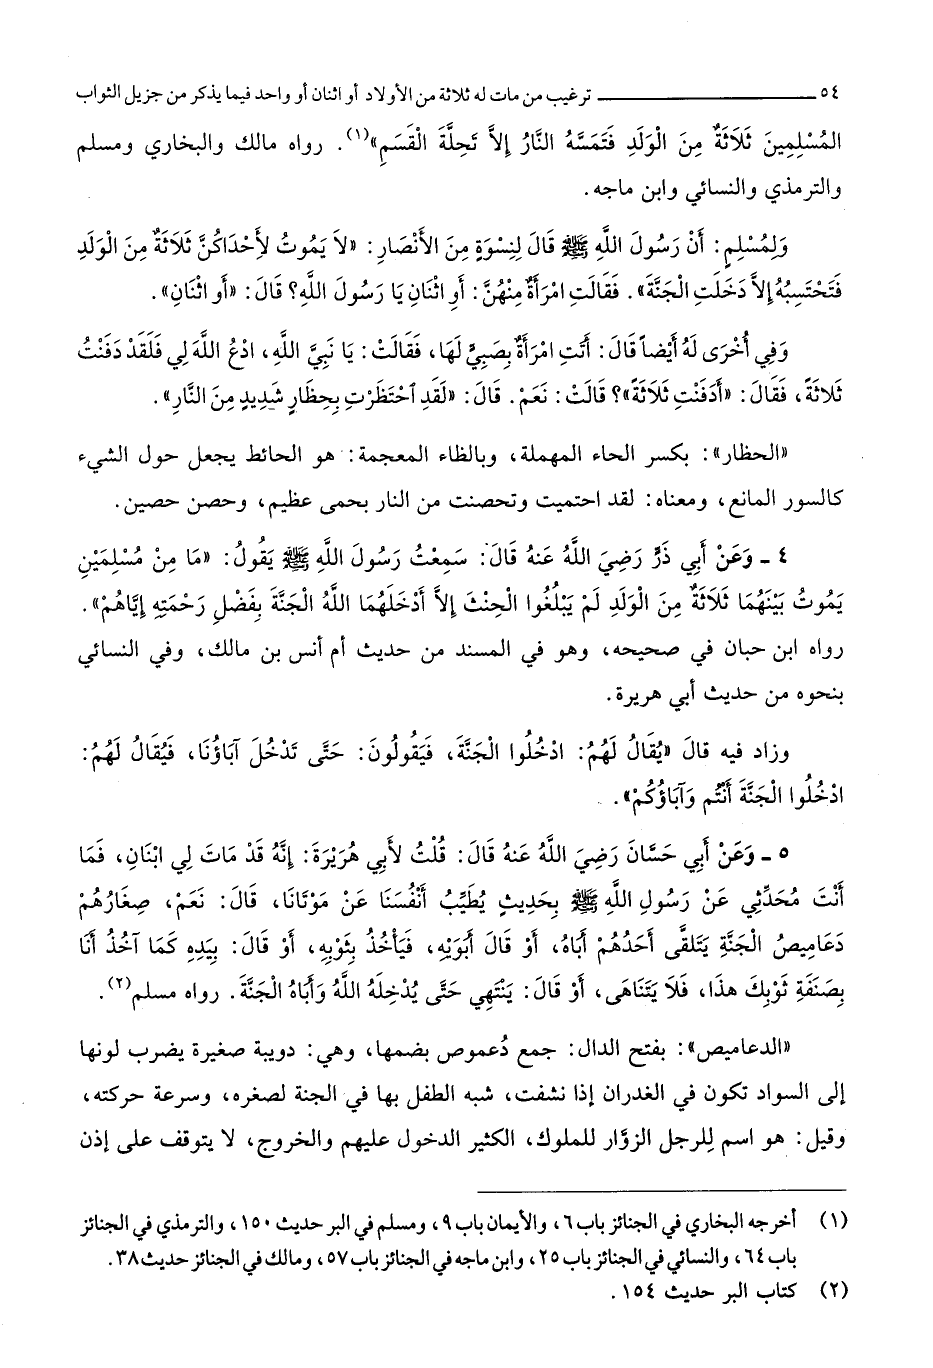 ٥٤ ــــــــــــــ ترغيب من مات له ثلاثة من الأولاد أو اثنان أو واحد فيما يذكر من جزيل الثواب
المُسْلِمِينَ ثَلَاثَةٌ مِنَ الْوَلَدِ فَتَمَسَّهُ النَّارُ إِلاَّ تَحِلَّةَ الْقَسَمِ»(١). رواه مالك والبخاري ومسلم
والترمذي والنسائي وابن ماجه.
وَلِمُسْلِمٍ: أَنْ رَسُولَ اللَّهِ ﷺ قَالَ لِنِسْوَةٍ مِنَ الأَنْصَارِ: «لاَ يَمُوتُ لِأَحْدَاكُنَّ ثَلَاثَةٌ مِنَ الْوَلَدِ
فَتَحْتَسِبُهُ إِلاَّ دَخَلَتِ الْجَنَّةَ». فَقَالَتِ امْرَأَةٌ مِنْهُنَّ: أَوِ اثْنَانِ يَا رَسُولَ اللَّهِ؟ قَالَ: «أَوِ اثْنَانِ».
وَفِي أُخْرَى لَهُ أَيْضاً قَالَ: أَتَتِ امْرَأَةٌ بِصَبِيٍّ لَهَا، فَقَالَتْ: يَا نَبِيَّ اللَّهِ، ادْعُ اللَّهَ لِي فَلَقَدْ دَفَنْتُ
ثَلَاثَةً، فَقَالَ: «أَدَفَنْتِ ثَلَاثَةً»؟ قَالَتْ: نَعَمْ. قَالَ: «لَقَدِ ٱحْتَظَرْتِ بِحِظَارٍ شَدِيدٍ مِنَ النَّارِ».
«الحظار»: بكسر الحاء المهملة، وبالظاء المعجمة: هو الحائط يجعل حول الشيء
كالسور المانع، ومعناه: لقد احتميت وتحصنت من النار بحمى عظيم، وحصن حصين.
٤ ـ وَعَنْ أَبِي ذَرٍّ رَضِيَ اللَّهُ عَنهُ قَالَ: سَمِعْتُ رَسُولَ اللَّهِ ﷺ يَقُولُ: «مَا مِنْ مُسْلِمَيْنِ
يَمُوتُ بَيْنَهُمَا ثَلَاثَةٌ مِنَ الْوَلَدِ لَمْ يَبْلُغُوا الْحِنْثَ إِلاَّ أَدْخَلَهُمَا اللَّهُ الْجَنَّةَ بِفَضْلِ رَحْمَتِهِ إِيَّاهُمْ».
رواه ابن حبان في صحيحه، وهو في المسند من حديث أم أنس بن مالك، وفي النسائي
بنحوه من حديث أبي هريرة.
وزاد فيه قالَ «يُقَالُ لَهُمُ: ادْخُلُوا الْجَنَّةَ، فَيَقُولُونَ: حَتَّى تَدْخُلَ آبَاؤُنَا، فَيُقَالُ لَهُمُ:
ادْخُلُوا الْجَنَّةَ أَنْتُم وَآبَاؤُكُمْ».
٥ ـ وَعَنْ أَبِي حَسَّانَ رَضِيَ اللَّهُ عَنهُ قَالَ: قُلْتُ لأَبِي هُرَيْرَةَ: إِنَّهُ قَدْ مَاتَ لِي ابْنَانِ، فَمَا
أَنْتَ مُحَدِّثِي عَنْ رَسُولِ اللَّهِ ﷺ بِحَدِيثٍ يُطَيِّبُ أَنْفُسَنَا عَنْ مَوْتَانَا، قَالَ: نَعَمْ، صِغَارُهُمْ
دَعَامِيصُ الْجَنَّةِ يَتَلقَّى أَحَدُهُمْ أَبَاهُ، أَوْ قَالَ أَبَوَيْهِ، فَيَأْخُذُ بِثَوْبِهِ، أَوْ قَالَ: بِيَدِهِ كَمَا آخُذُ أَنَا
بِصَنَفَةِ ثَوْبِكَ هذَا، فَلاَ يَتَنَاهَى، أَوْ قَالَ: يَنْتَهِي حَتَّى يُدْخِلَهُ اللَّهُ وَأَبَاهُ الْجَنَّةَ. رواه مسلم(٢).
«الدعاميص»: بفتح الدال: جمع دُعموص بضمها، وهي: دويبة صغيرة يضرب لونها
إلى السواد تكون في الغدران إذا نشفت، شبه الطفل بها في الجنة لصغره، وسرعة حركته،
وقيل: هو اسم لِلرجل الزوَّار للملوك، الكثير الدخول عليهم والخروج، لا يتوقف على إذن
(١) أخرجه البخاري في الجنائز باب ٦، والأيمان باب ٩، ومسلم في البر حديث ١٥٠، والترمذي في الجنائز
باب ٦٤، والنسائي في الجنائز باب ٢٥، وابن ماجه في الجنائز باب ٥٧، ومالك في الجنائز حديث ٣٨.
(٢) كتاب البر حديث ١٥٤.